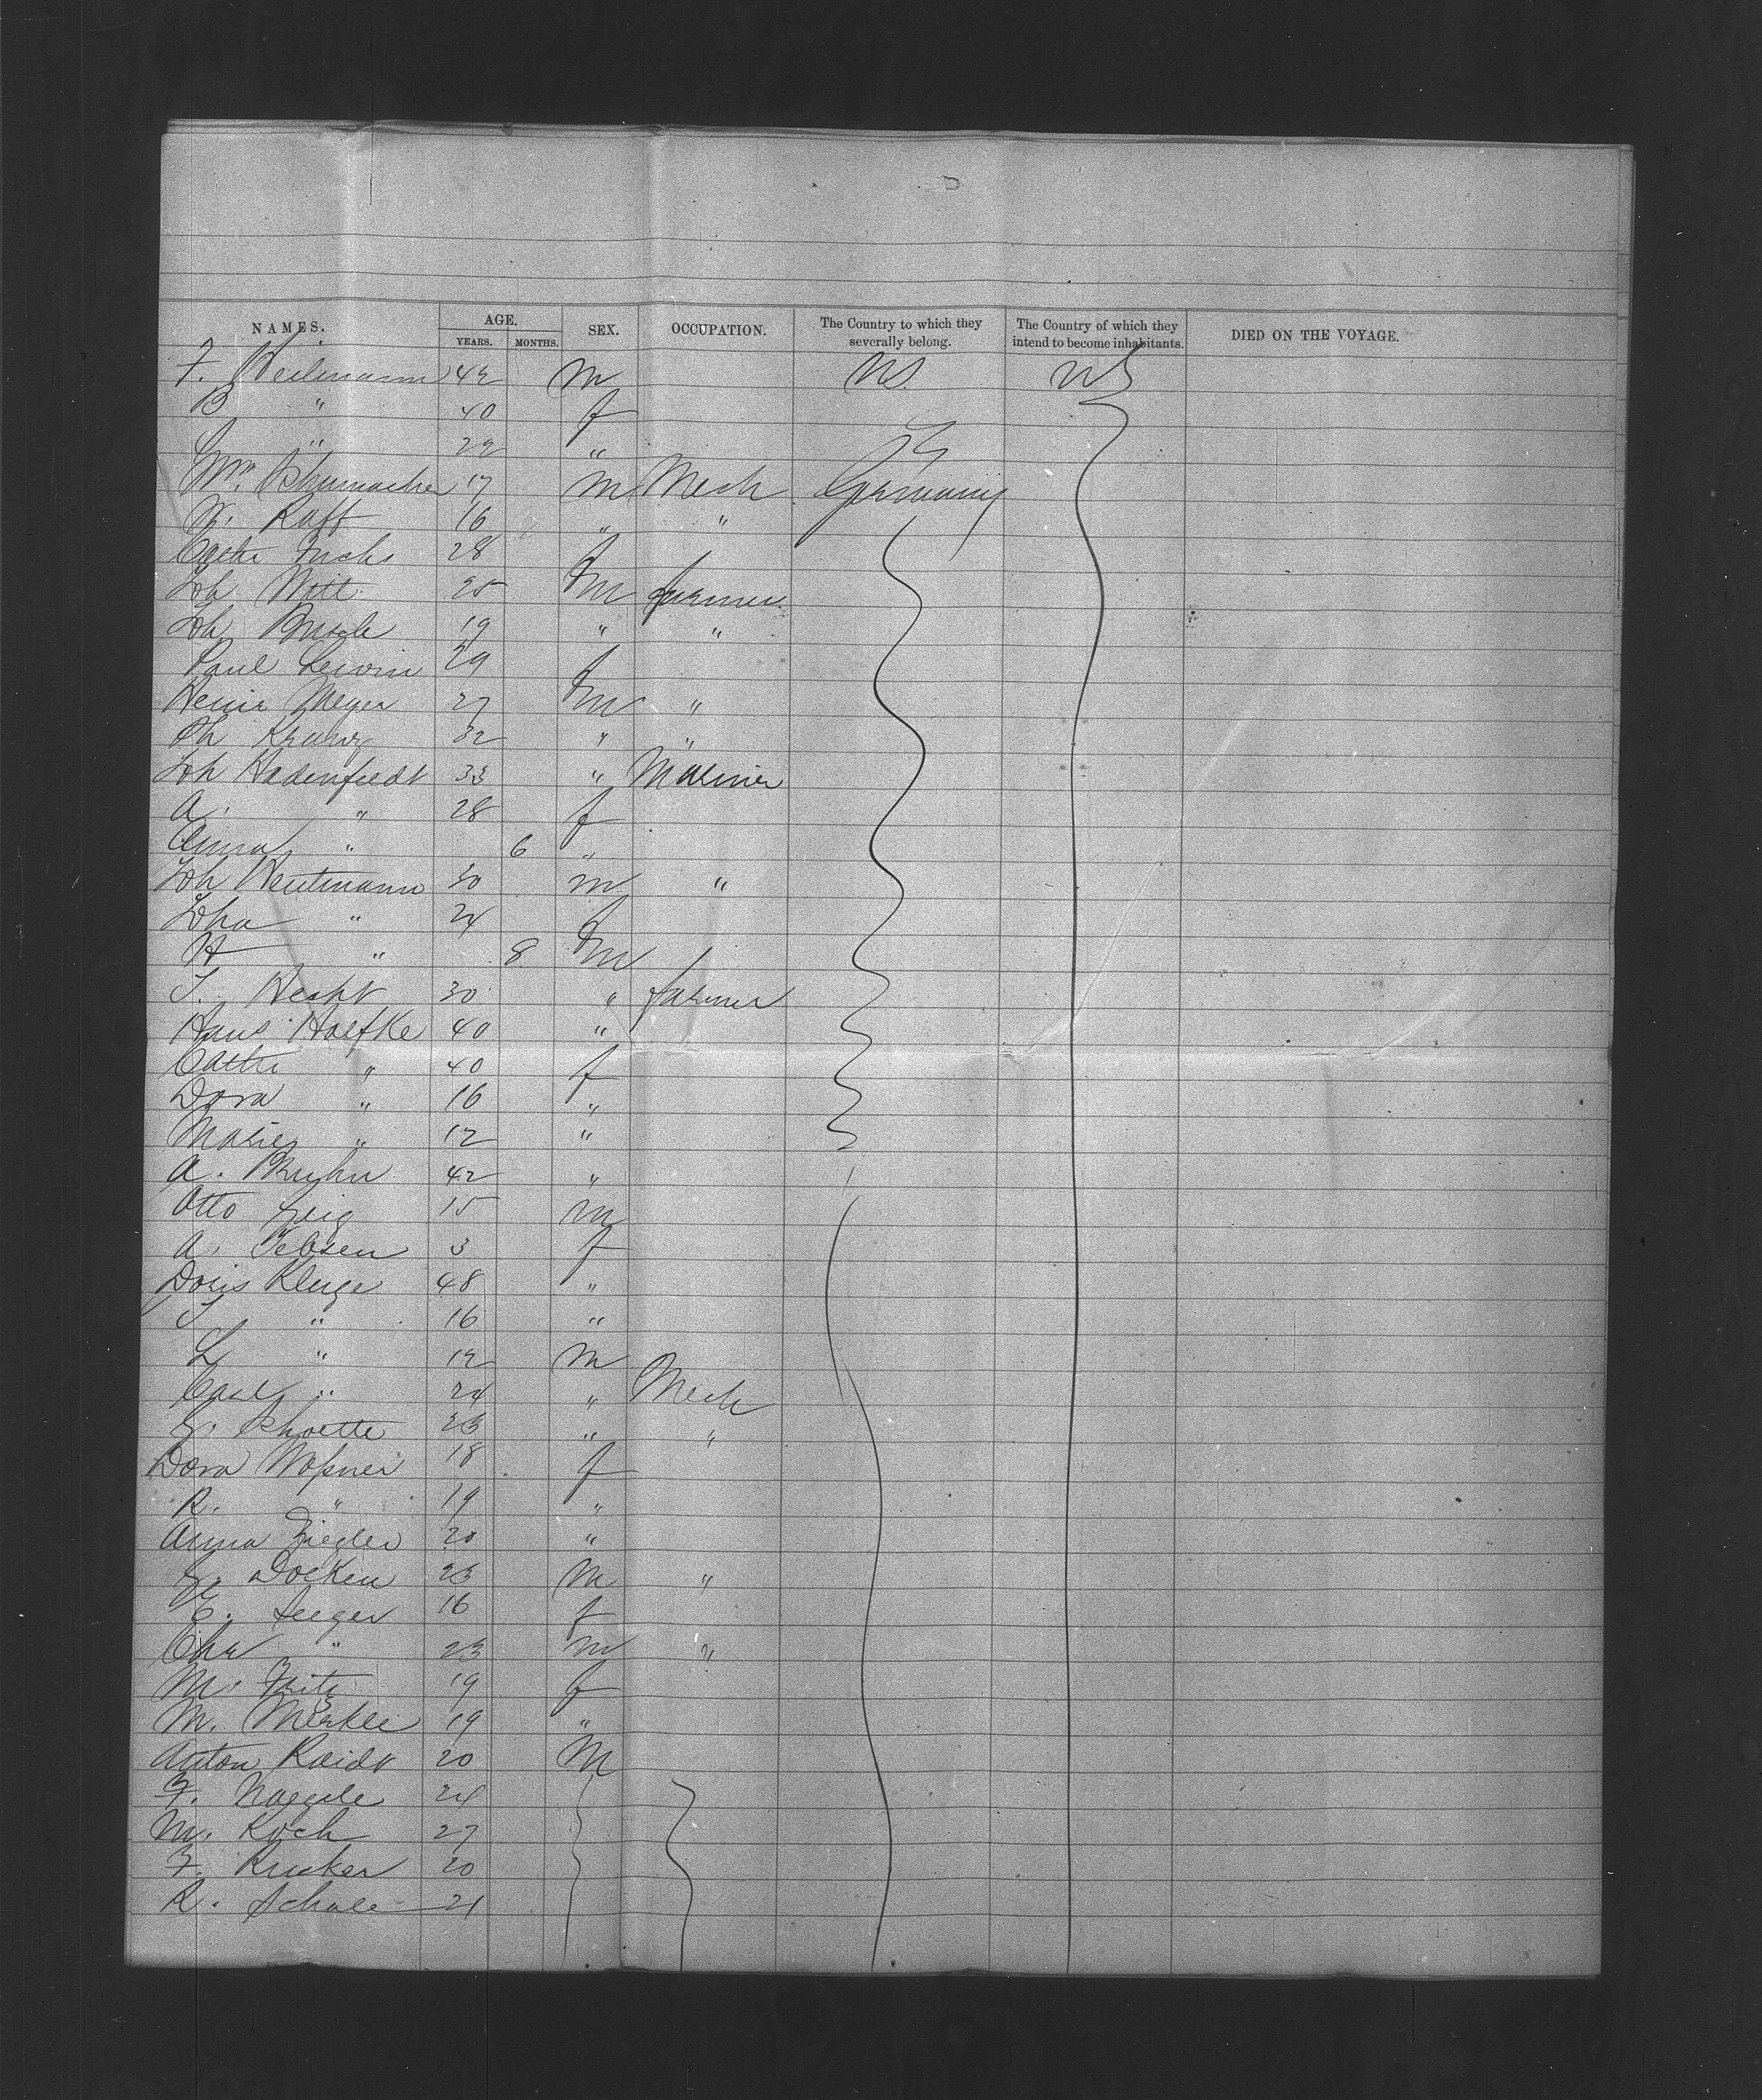 NAMES. AGE. SEX. OCCUPATION. The Country to which they severally belong. The Country of which they intend to become inhabitants. DIED ON THE VOYAGE.
YEARS. MONTHS.
F. Heilmann 42 m US US
B " 40 f
" 22 "
Wm. Schumacher 17 m Mech Germany
K. Raff 16 " "
Cathr Fuchs 28 f
Joh Witt 25 m farmer
Joh 19 " "
Paul Lewin 29 f
Heinr Meyer 27 m "
Ph 32 " "
Joh Hadenfeldt 33 " Mariner
A. " 28 f
Anna " 6 "
Joh Wentmann 30 m "
Joha " 24 f
H " 8 m
J. Hecht 30 " farmer
Hans Holfke 40 "
Cathr " 40 f
Dora " 16 "
Marie " 12 "
A. Bruhn 42 "
Otto 15 m
A. Tebsen 3 f
Doris Kluge 48 "
J " 16 "
L " 12 m
Carl " 24 " Mech
G. Schoette 23 " "
Dora Woßner 18 f
R. " 19 "
Anna Ziegler 20 "
G. Docken 23 m "
E. Seeger 16 f
Chr " 23 m "
M. Fritz 19 f
M. Merkle 19 "
Anton Raidt 20 m
F. Naegele 24
M. Koch 27
F. Rucker 20
R. Schale 21